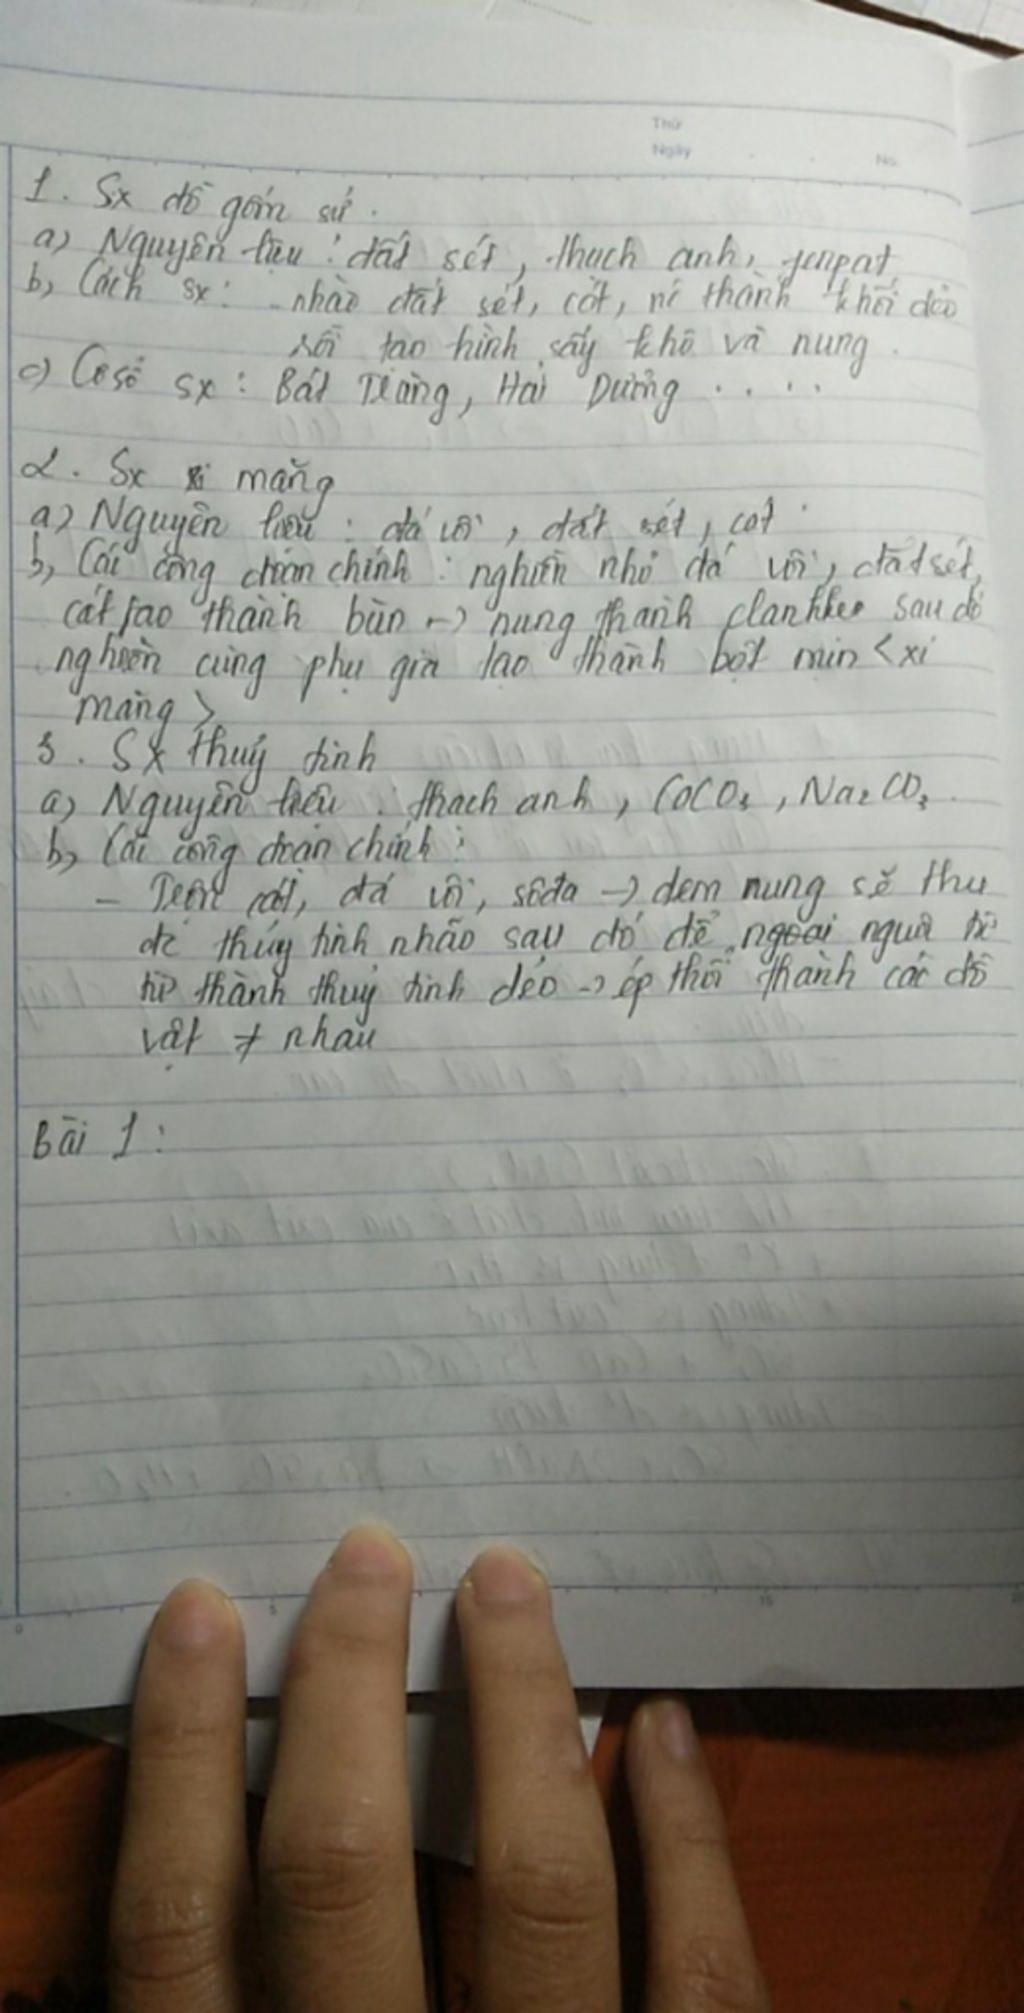 Thứ
Ngày No.
1. Sx đồ gốm sứ.
a) Nguyên liệu : đất sét, thạch anh, fenpat
b, Cách sx : nhào đất sét, cát, nc thành khối dẻo
rồi tạo hình sấy khô và nung.
c) Cơ sở sx : Bát Tràng, Hải Dương .....
2. Sx xi măng
a) Nguyên liệu : đá vôi, đất sét, cát
b, Các công đoạn chính : nghiền nhỏ đá vôi, đất sét,
cát tạo thành bùn -> nung thành clanhke sau đó
nghiền cùng phụ gia tạo thành bột mịn <xi
măng>
3. Sx thuỷ tinh
a) Nguyên liệu : thạch anh, CaCO3, Na2CO3.
b, Các công đoạn chính :
- Trộn cát, đá vôi, sôđa -> đem nung sẽ thu
đc thủy tinh nhão sau đó để ngoài nguội từ
từ thành thuỷ tinh dẻo -> ép thổi thành các đồ
vật ≠ nhau
Bài 1 :
0 5 15